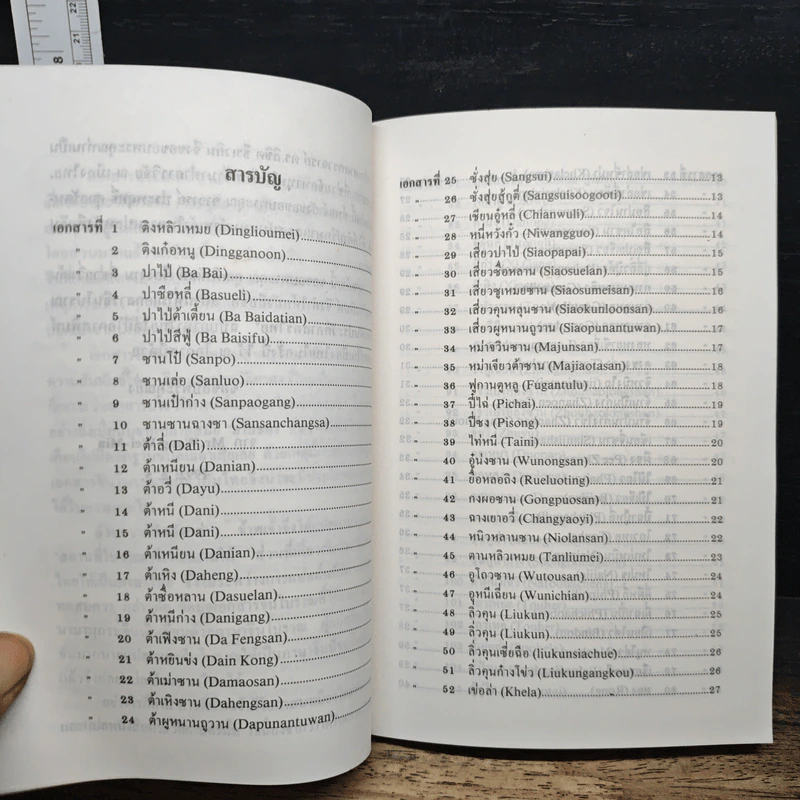 8
21
22
สารบัญ
เอกสารที่ 1 ติงหลิวเหมย (Dinglioumei)
" 2 ติงเก๋อหนู (Dingganoon)
" 3 ปาไป่ (Ba Bai)
" 4 ปาซือหลี่ (Basueli)
" 5 ปาไป่ต้าเตี้ยน (Ba Baidatian)
" 6 ปาไป่สีฟู่ (Ba Baisifu)
" 7 ซานโป๋ (Sanpo)
" 8 ซานเล่อ (Sanluo)
" 9 ซานเป้าก่าง (Sanpaogang)
" 10 ซานซานฉางซา (Sansanchangsa)
" 11 ต้าลี่ (Dali)
" 12 ต้าเหนียน (Danian)
" 13 ต้าอวี่ (Dayu)
" 14 ต้าหนี (Dani)
" 15 ต้าหนี (Dani)
" 16 ต้าเหนียน (Danian)
" 17 ต้าเหิง (Daheng)
" 18 ต้าซื่อหลาน (Dasuelan)
" 19 ต้าหนีก่าง (Danigang)
" 20 ต้าเฟิงซาน (Da Fengsan)
" 21 ต้าหยินข่ง (Dain Kong)
" 22 ต้าเม่าซาน (Damaosan)
" 23 ต้าเหิงซาน (Dahengsan)
" 24 ต้าผูหนานถูวาน (Dapunantuwan)
เอกสารที่ 25 ซั่งสุ่ย (Sangsui) 13
" 26 ซั่งสุ่ยสู้กูตี่ (Sangsuisoogooti) 13
" 27 เชียนอู๋หลี่ (Chianwuli) 14
" 28 หนี่หวังกั๋ว (Niwangguo) 14
" 29 เสี่ยวปาไป่ (Siaopapai) 15
" 30 เสี่ยวซื่อหลาน (Siaosuelan) 15
" 31 เสี่ยวซูเหมยซาน (Siaosumeisan) 16
" 32 เสี่ยวคุนหลุนซาน (Siaokunloonsan) 16
" 33 เสี่ยวผูหนานถูวาน (Siaopunantuwan) 17
" 34 หม่าจวินซาน (Majunsan) 17
" 35 หม่าเจียวต้าซาน (Majiaotasan) 18
" 36 ฟูกานตูหลู (Fugantulu) 18
" 37 ปี่ไฉ่ (Pichai) 19
" 38 ปี่ซง (Pisong) 19
" 39 ไท่หนี (Taini) 20
" 40 อู๋น่งซาน (Wunongsan) 20
" 41 ยื้อหลอถิง (Rueluoting) 21
" 42 กงผอซาน (Gongpuosan) 21
" 43 ฉางเยาอวี่ (Changyaoyi) 22
" 44 หนิวหลานซาน (Niolansan) 22
" 45 ตานหลิวเหมย (Tanliumei) 23
" 46 อูโถวซาน (Wutousan) 24
" 47 อูหนีเฉี่ยน (Wunichian) 24
" 48 ลิ่วคุน (Liukun) 25
" 49 ลิ่วคุน (Liukun) 25
" 50 ลิ่วคุนเซี่ยฉือ (liukunsiachue) 26
" 51 ลิ่วคุนก๋างโข่ว (Liukungangkou) 26
" 52 เข่อล่า (Khela) 27